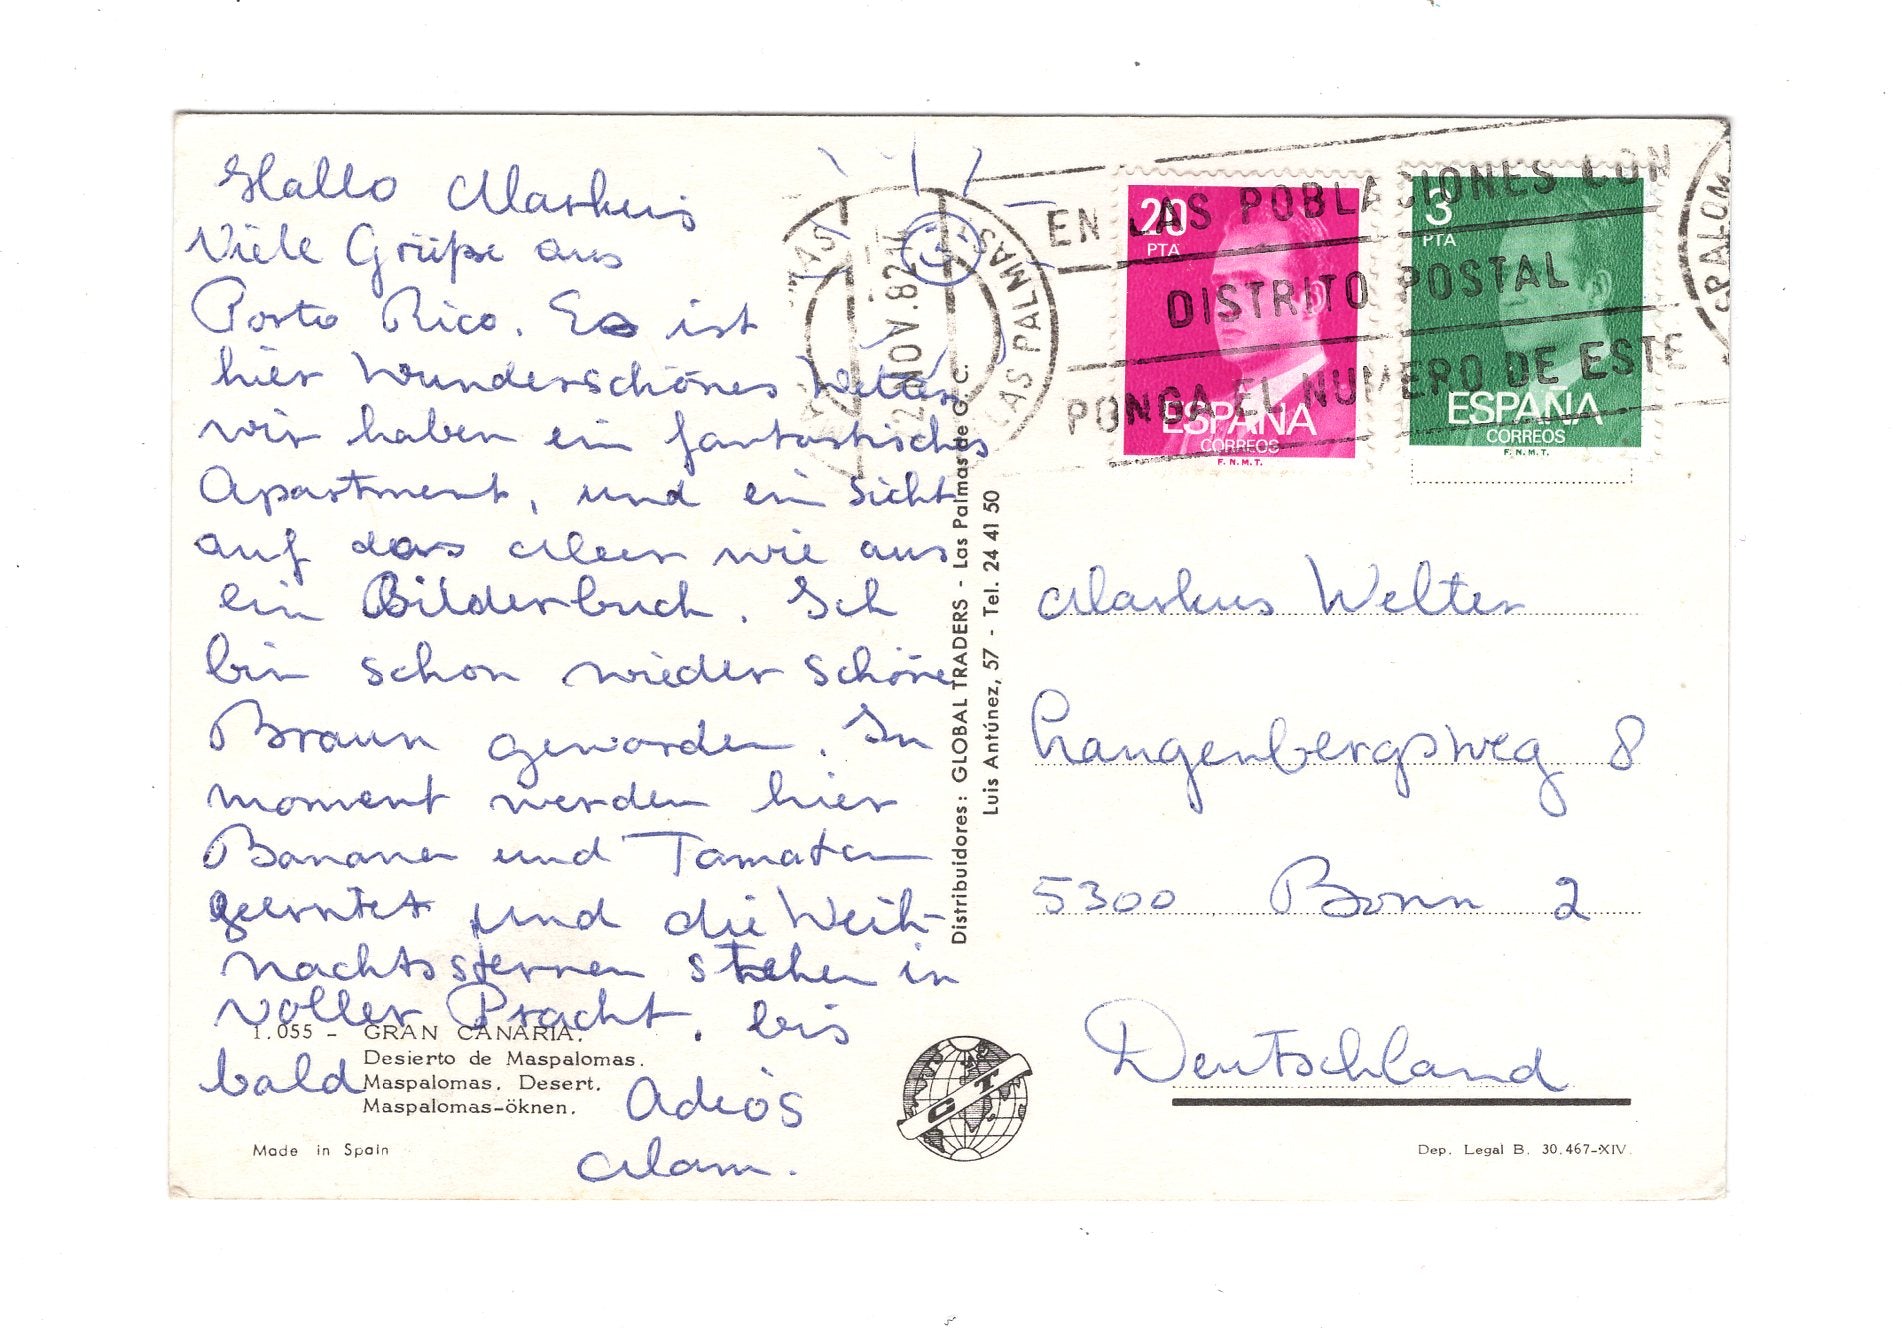 Hallo Markus
Viele Grüße aus
Porto Rico. Es ist
hier Wunderschönes Wetter
wir haben ein fantastisches
Apartment, und ein Sicht
auf das Meer wie aus
ein Bilderbuch. Ich
bin schon wieder schöne
Braun geworden. In
moment werden hier
Bananen und Tamaten
geerntet und die Weih-
nachtssternen stehen in
voller Pracht. bis
bald Adiòs
Mam.
1.055 - GRAN CANARIA.
Desierto de Maspalomas.
Maspalomas. Desert.
Maspalomas-öknen.
Made in Spain
Distribuidores: GLOBAL TRADERS - Las Palmas de G. C.
Luis Antúnez, 57 - Tel. 24 41 50
GT
NOV. 82
LAS PALMAS
EN LAS POBLACIONES CON
DISTRITO POSTAL
PONGA EL NUMERO DE ESTE
20
PTA
ESPAÑA
CORREOS
F.N.M.T.
3
PTA
ESPAÑA
CORREOS
F.N.M.T.
Markus Welter
Langenbergsweg 8
5300 Bonn 2
Deutschland
Dep. Legal B. 30.467-XIV